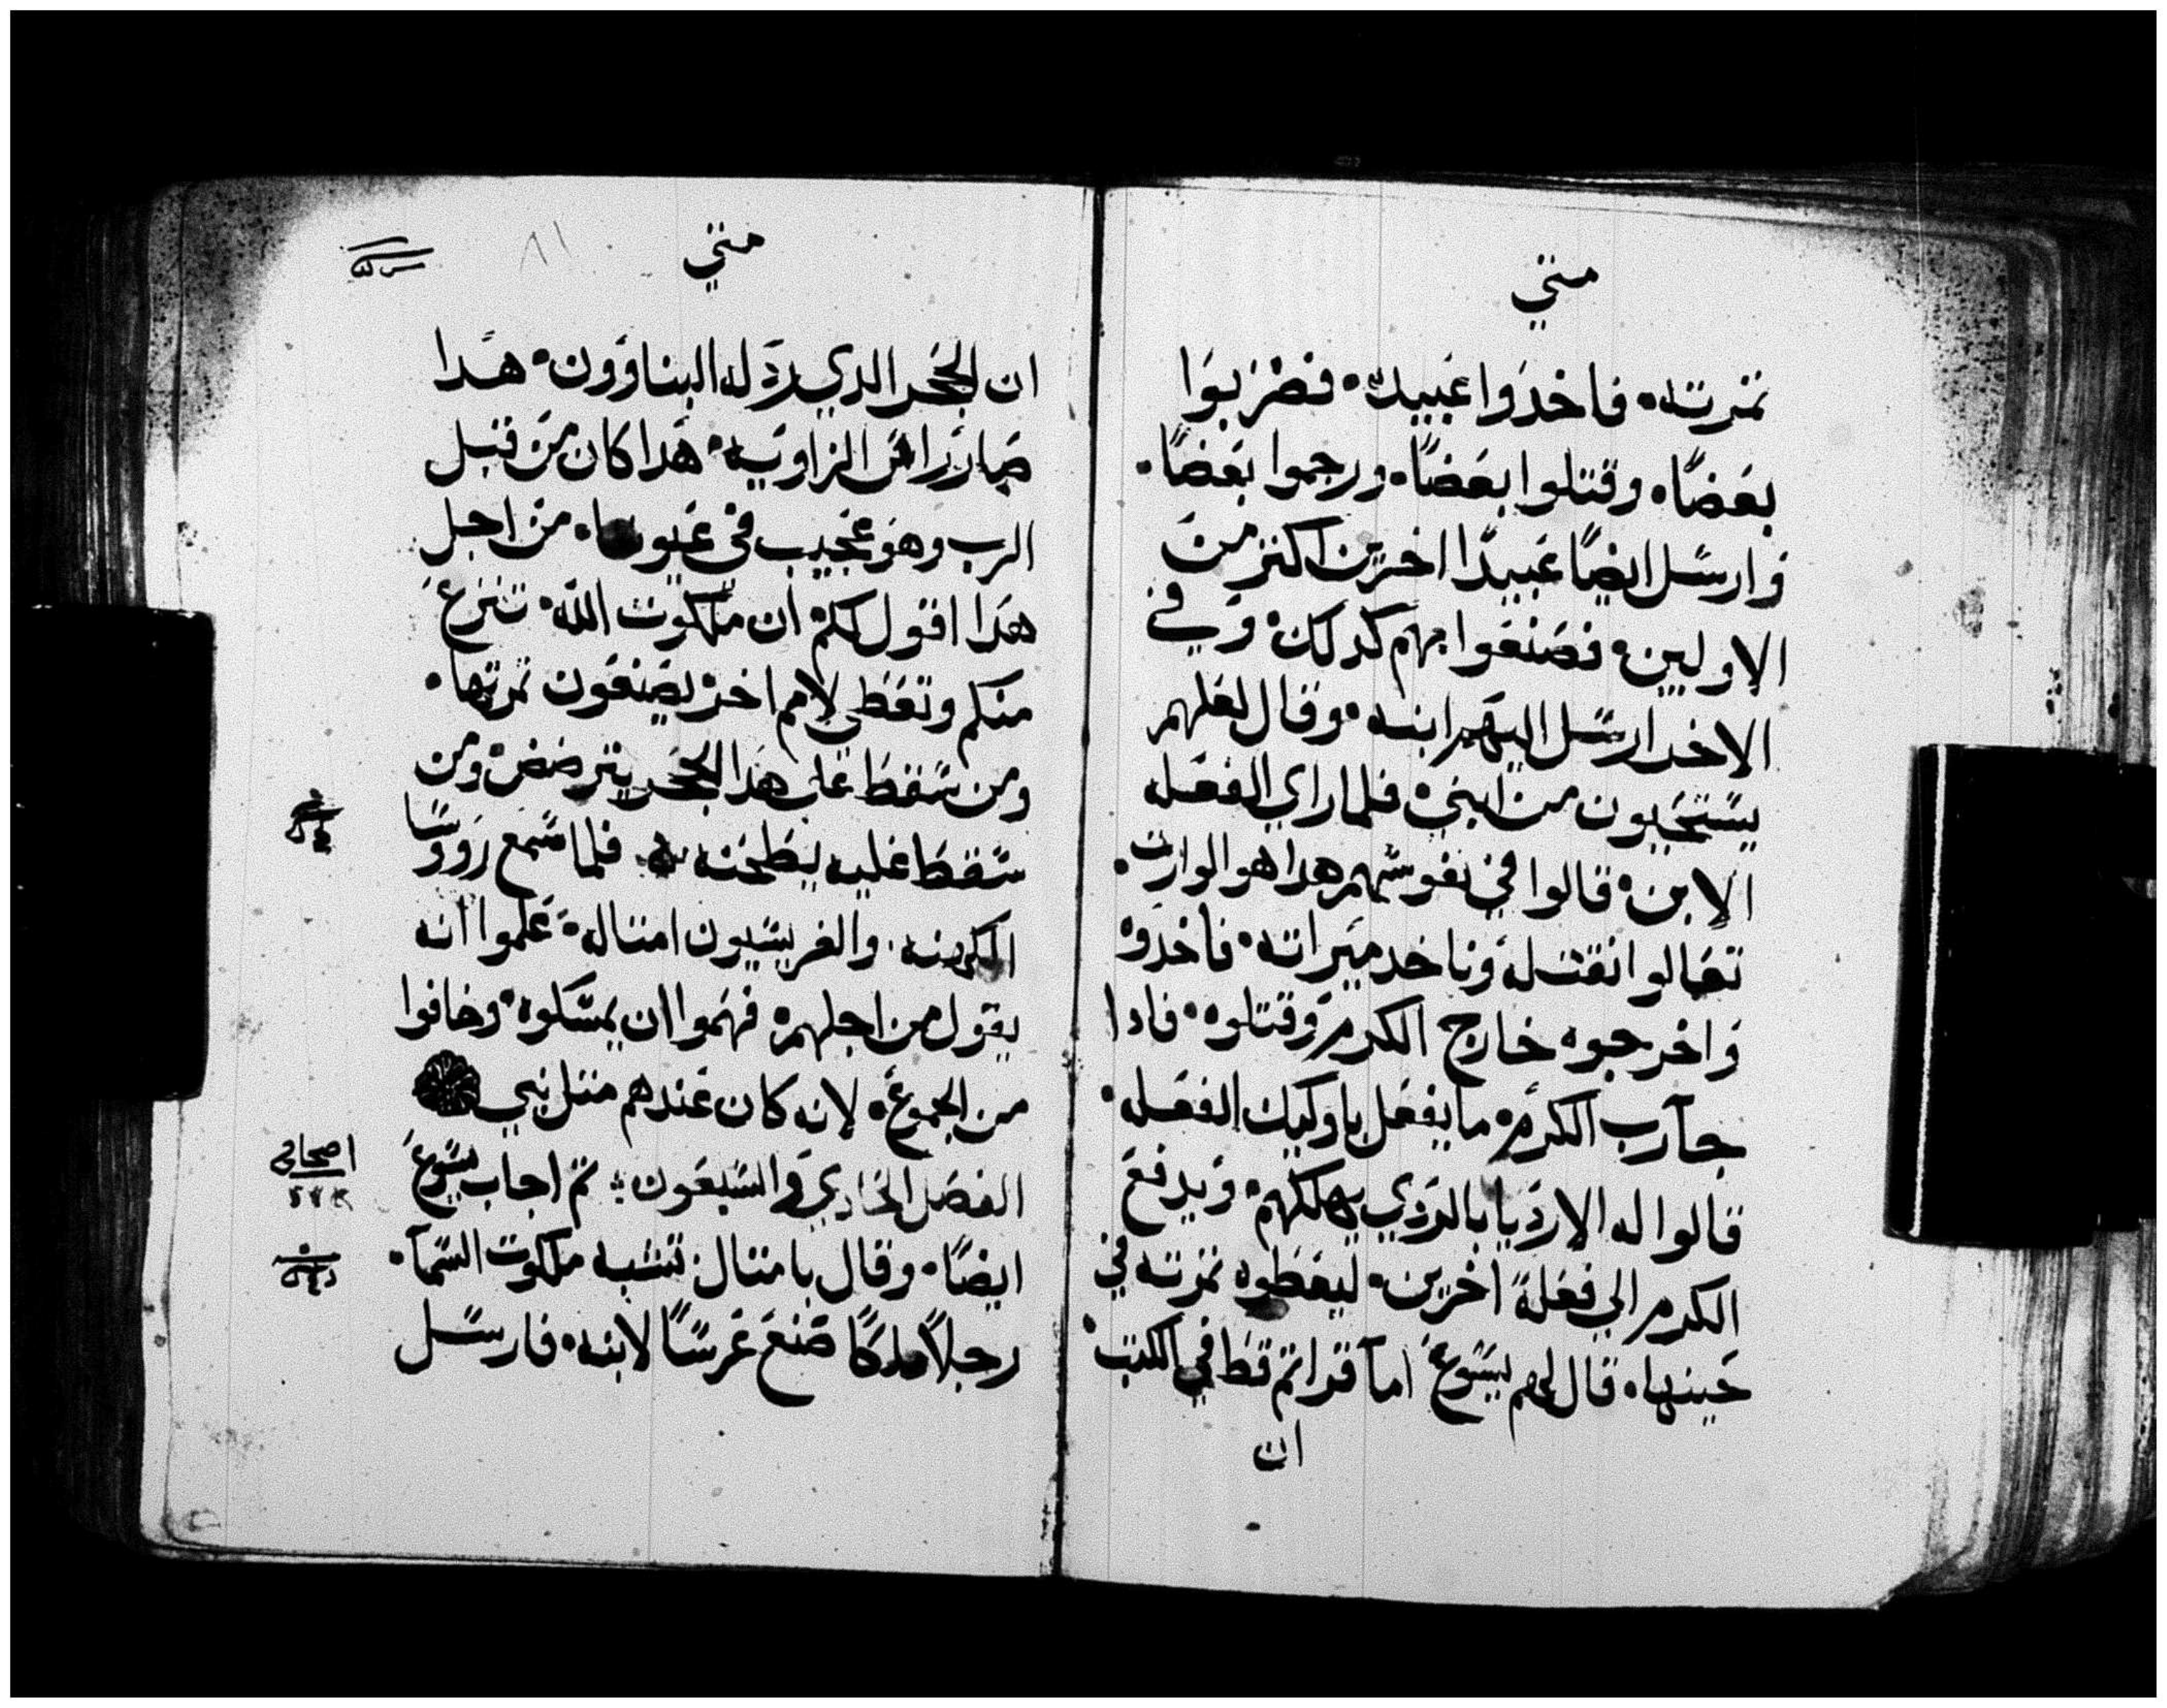 متي
تمرته، فاخدوا عبيده، فضربوا
بعضًا، وقتلوا بعضًا، ورجموا بعضًا.
وارسل ايضًا عبيدًا اخرين اكتر من
الاولين، فصنعوا بهم كدلك، وفي
الاخر ارسل اليهم ابنه، وقال لعلهم
يستحيون من ابني، فلما راي الفعله
الابن، قالوا في نفوسهم هدا هو الوارت.
تعالوا نقتله وناخد ميراته، فاخدوه
واخرجوه خارج الكرم وقتلوه، فادا
جآ رب الكرم، ما يفعل باوليك الفعله.
قالوا له الارديا بالردي يهلكهم، ويدفع
الكرم الي فعلة اخرين، ليعطوه تمرته في
حينها، قال لهم يسوع اما قراتم قط في الكتب،
ان
متي
٨١
ان الحجر الدي ردله البناوون، هدا
صار راس الزاويه، هدا كان من قبل
الرب وهو عجيب في عيوننا، من اجل
هدا اقول لكم ان ملكوت الله، تنزع
منكم وتعطي لامم اخر يصنعون تمرتها.
ومن سقط علي هدا الحجر يترضض، ومن
سقط عليه يطحنه فلما سمع رووسا
الكهنه، والفريسيون امتاله، علموا انه
يقول من اجلهم، فهموا ان يمسكوه، وخافوا
من الجموع، لانه كان عندهم متل نبي
الفصل الحادي والسبعون، تم اجاب يسوع
ايضًا، وقال بامتال تشبه ملكوت السمآ.
رجلًا ملكًا صنع عرسًا لابنه، فارسل
اصحاح